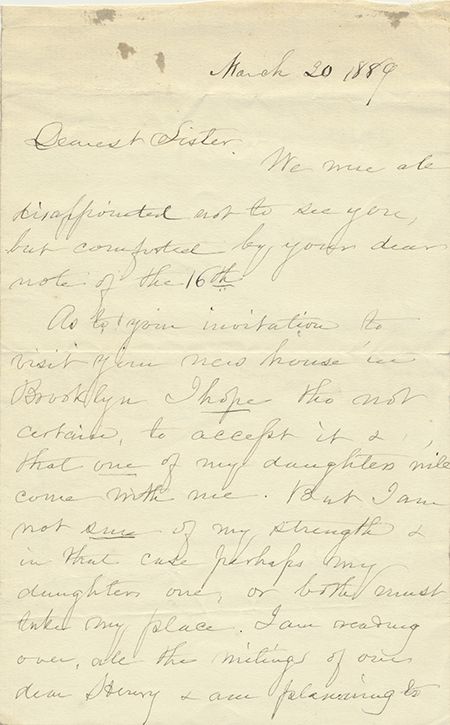 March 20 1889
Dearest Sister.
We were all
disappointed not to see you,
but comforted by your dear
note of the 16th
As to your invitation to
visit your new house in
Brooklyn I hope tho not
certain, to accept it &
that one of my daughters will
come with me. But I am
not sure of my strength &
in that case perhaps my
daughters one, or both must
take my place. I am reading
over, all the writings of our
dear Henry & am planning to